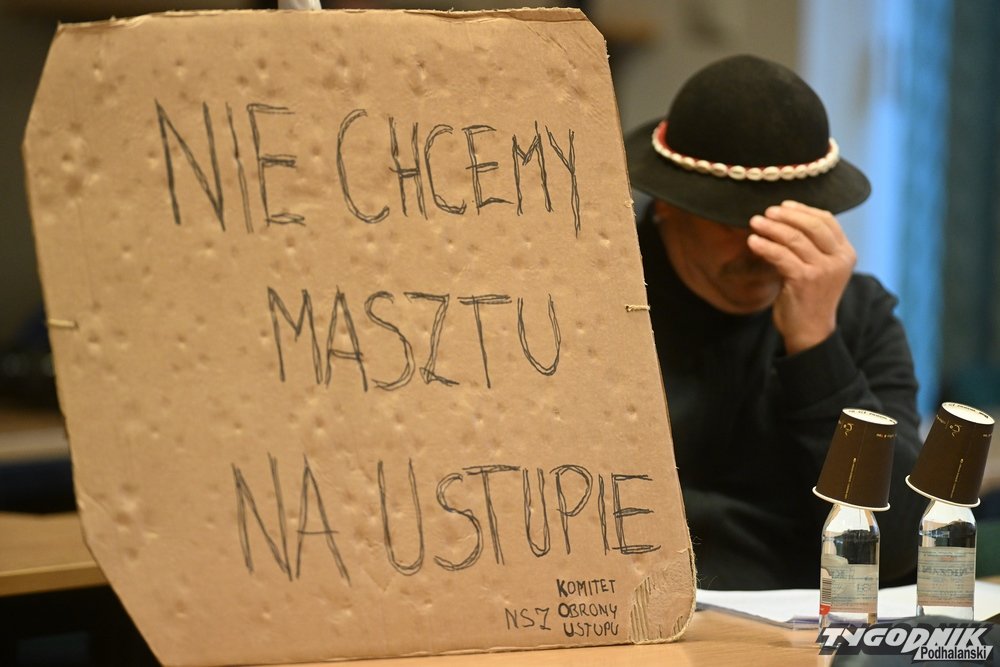 NIE CHCEMY
MASZTU
NA USTUPIE
KOMITET
NSZ OBRONY
USTUPU
TYGODNIK
Podhalański